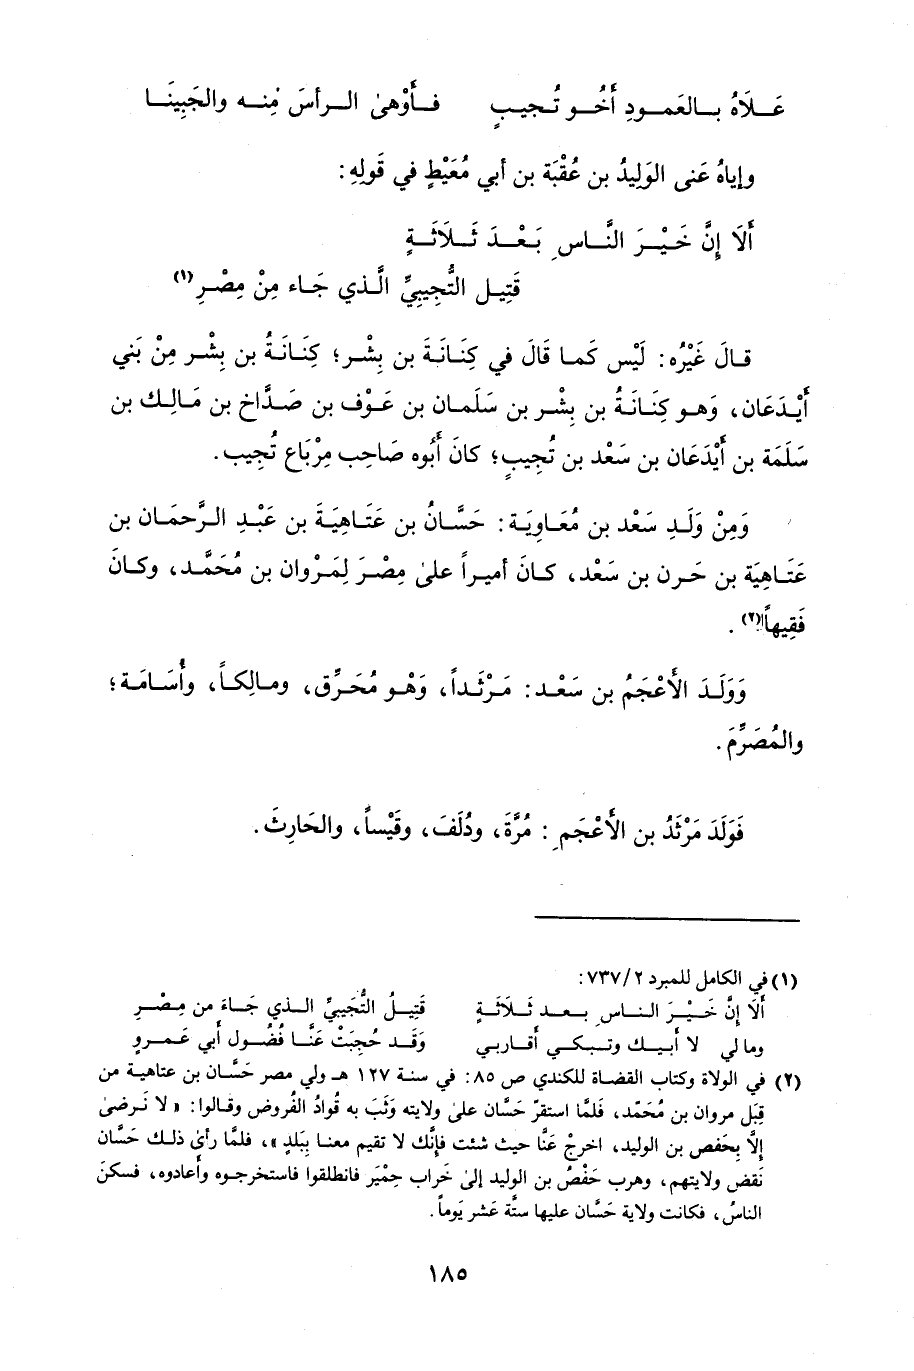 عَـلَاهُ بـالعَمـودِ أَخُـو تُـجيبٍ     فـأَوْهىٰ الـرأسَ مِنـه والجَبِينَـا
وإياهُ عَنى الوَلِيدُ بن عُقْبَة بن أبي مُعَيْطٍ في قَولِهِ:
أَلَا إِنَّ خَـيْـرَ النَّـاسِ بَـعْـدَ ثَـلَاثَـةٍ
قَتِيـل التُّجِيبِيِّ الَّـذي جَـاء مِنْ مِصْـرِ(١)
قـالَ غَيْرُه: لَيْس كَمـا قَالَ في كِنَـانَةَ بن بِشْـر؛ كِنَـانَةُ بن بِشْـر مِنْ بَني
أَيْـدَعَان، وَهـو كِنَـانَةُ بن بِشْر بن سَلَمـان بن عَـوْف بن صَـدَّاخ بن مَـالِـك بن
سَلَمَة بن أَيْدَعَان بن سَعْـد بن تُجِيبٍ؛ كانَ أَبُوه صَاحِب مِرْبَاع تُجِيب.
وَمِنْ وَلَـدِ سَعْـد بن مُعَـاوِيَـة: حَسَّانُ بن عَتَـاهِيَـة بن عَبْـدِ الـرَّحمَـان بن
عَتَـاهِيَة بن حَـرن بن سَعْد، كـانَ أميـراً علىٰ مِصْـرَ لِمَـرْوان بن مُحَمَّـد، وكـانَ
فَقِيهاً(٢).
وَوَلَـدَ الأَعْجَمُ بن سَعْـد: مَـرْثَـداً، وَهْـو مُحَـرِّق، ومـالِكـاً، وأُسَـامَـة؛
والمُصَرِّمَ.
فَوَلَدَ مَرْثَدُ بن الأَعْجَمِ: مُرَّةَ، ودُلَفَ، وقَيْساً، والحَارِثَ.
(١) في الكامل للمبرد ٢/ ٧٣٧:
أَلَا إِنَّ خَـيْـرَ النـاسِ بـعـد ثَـلَاثَـةٍ     قَتِيـلُ التُّجَيبيِّ الـذي جَـاءَ من مِـصْـرِ
وما لي لا أَبـيـك وتـبـكـي أَقـاربي     وَقَـد حُجِبَتْ عَنَّـا فُضُـول أَبي عَـمـرو
(٢) في الولاة وكتاب القضـاة للكندي ص ٨٥: في سنـة ١٢٧ هـ ولي مصر حَسَّان بن عتاهيـة من
قِبَل مروان بن مُحَمَّد، فَلمَّا استقرّ حَسَّان علىٰ ولايته وَثَبَ به قُوادُ الفُروض وقـالوا: « لا نَـرضىٰ
إلاَّ بِحَفص بن الوليد، اخرجْ عَنَّا حيث شئت فإنَّك لا تقيم معنـا بِبَلدٍ »، فلمَّا رأىٰ ذلـك حَسَّان
نَقض ولايتهم، وهرب حَفْصُ بن الوليد إلىٰ خَراب حِمْيَر فانطلقوا فاستخرجـوه وأعادوه، فسكنَ
الناسُ، فكانت ولاية حَسَّان عليها ستَّة عَشر يَوماً.
١٨٥